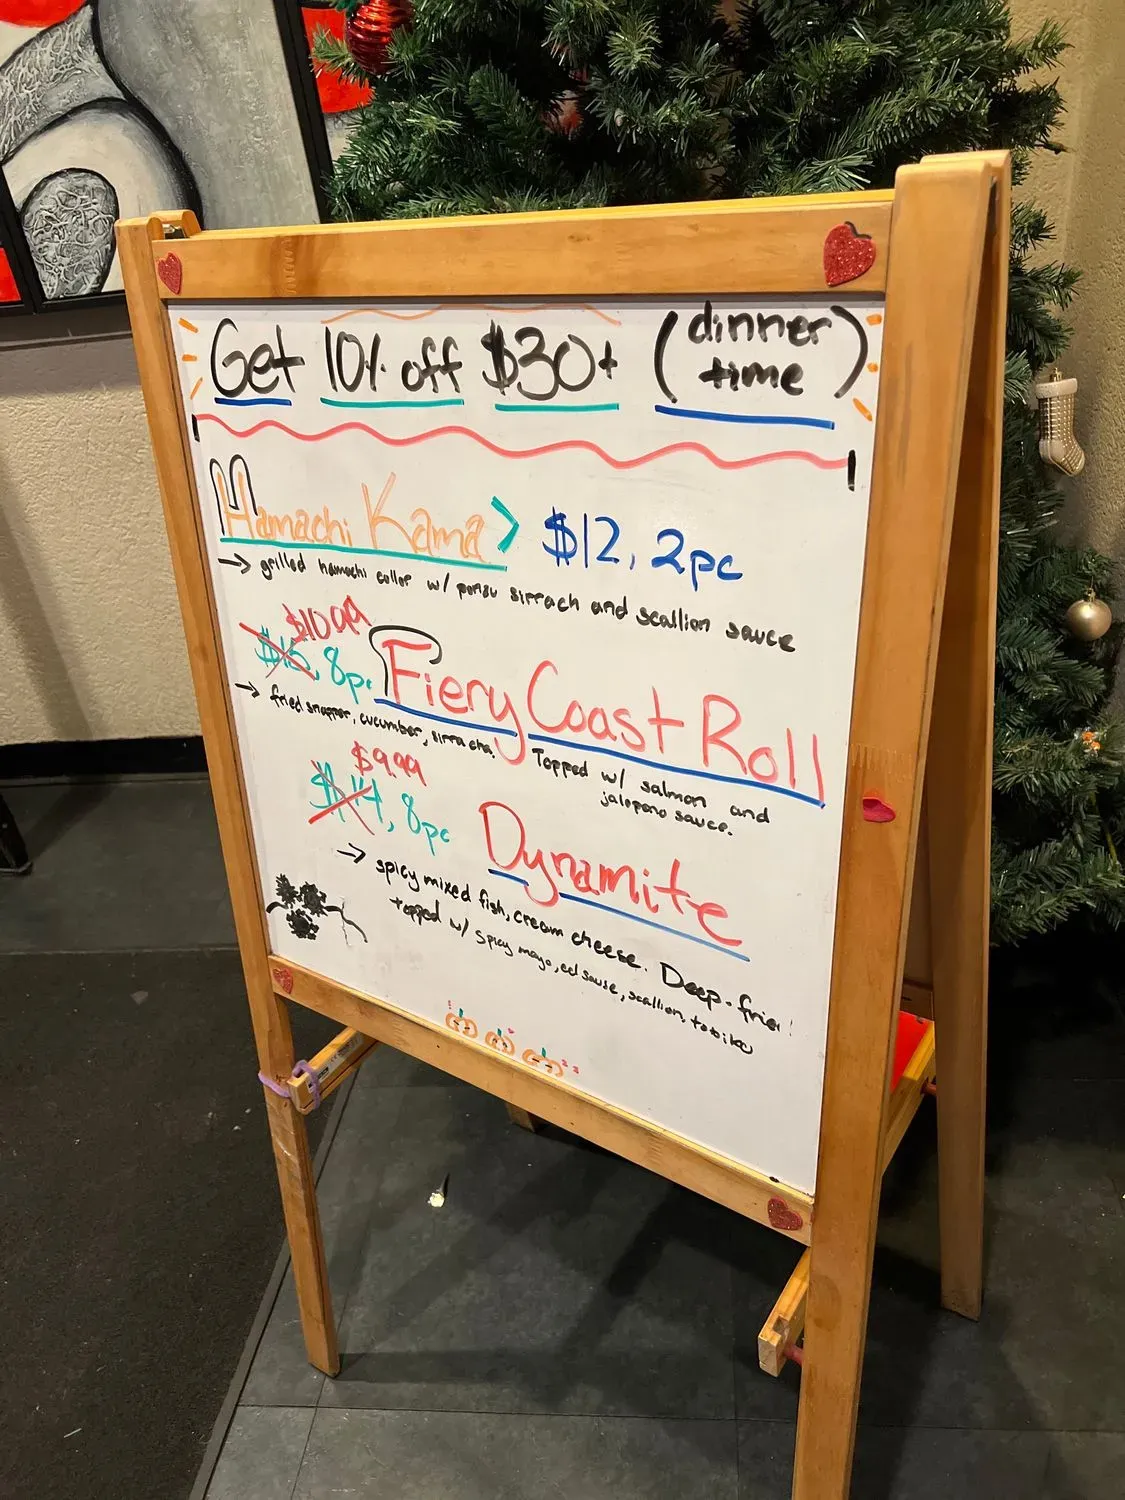 Get 10% off $30+ (dinner time)
Hamachi Kama > $12, 2pc
→ grilled hamachi collar w/ ponzu sirrach and scallion sauce
$10.99
$15, 8pc Fiery Coast Roll
→ fried snapper, cucumber, sirracha. Topped w/ salmon and
jalapeno sauce.
$9.99
$14, 8pc Dynamite
→ spicy mixed fish, cream cheese. Deep-fried!
topped w/ spicy mayo, eel sause, scallion, tobiko